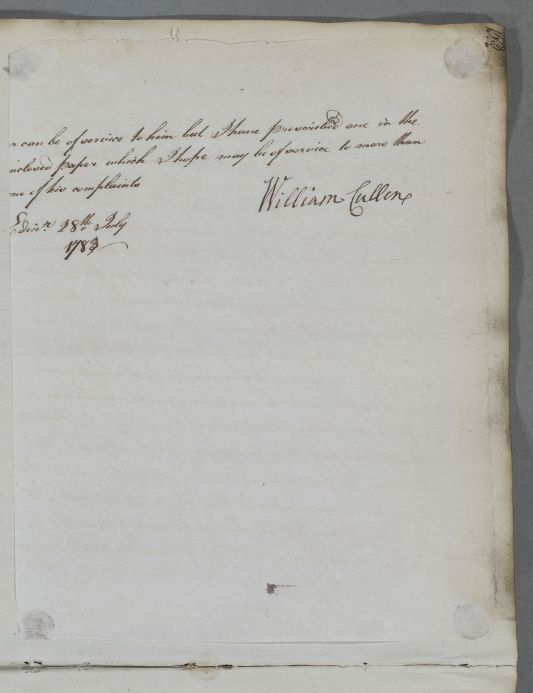 can be of service to him but I have prescribed one in the
inclosed paper which I hope may be of service to more than
one of his complaints
William Cullen
Edinr. 28th. July
1783